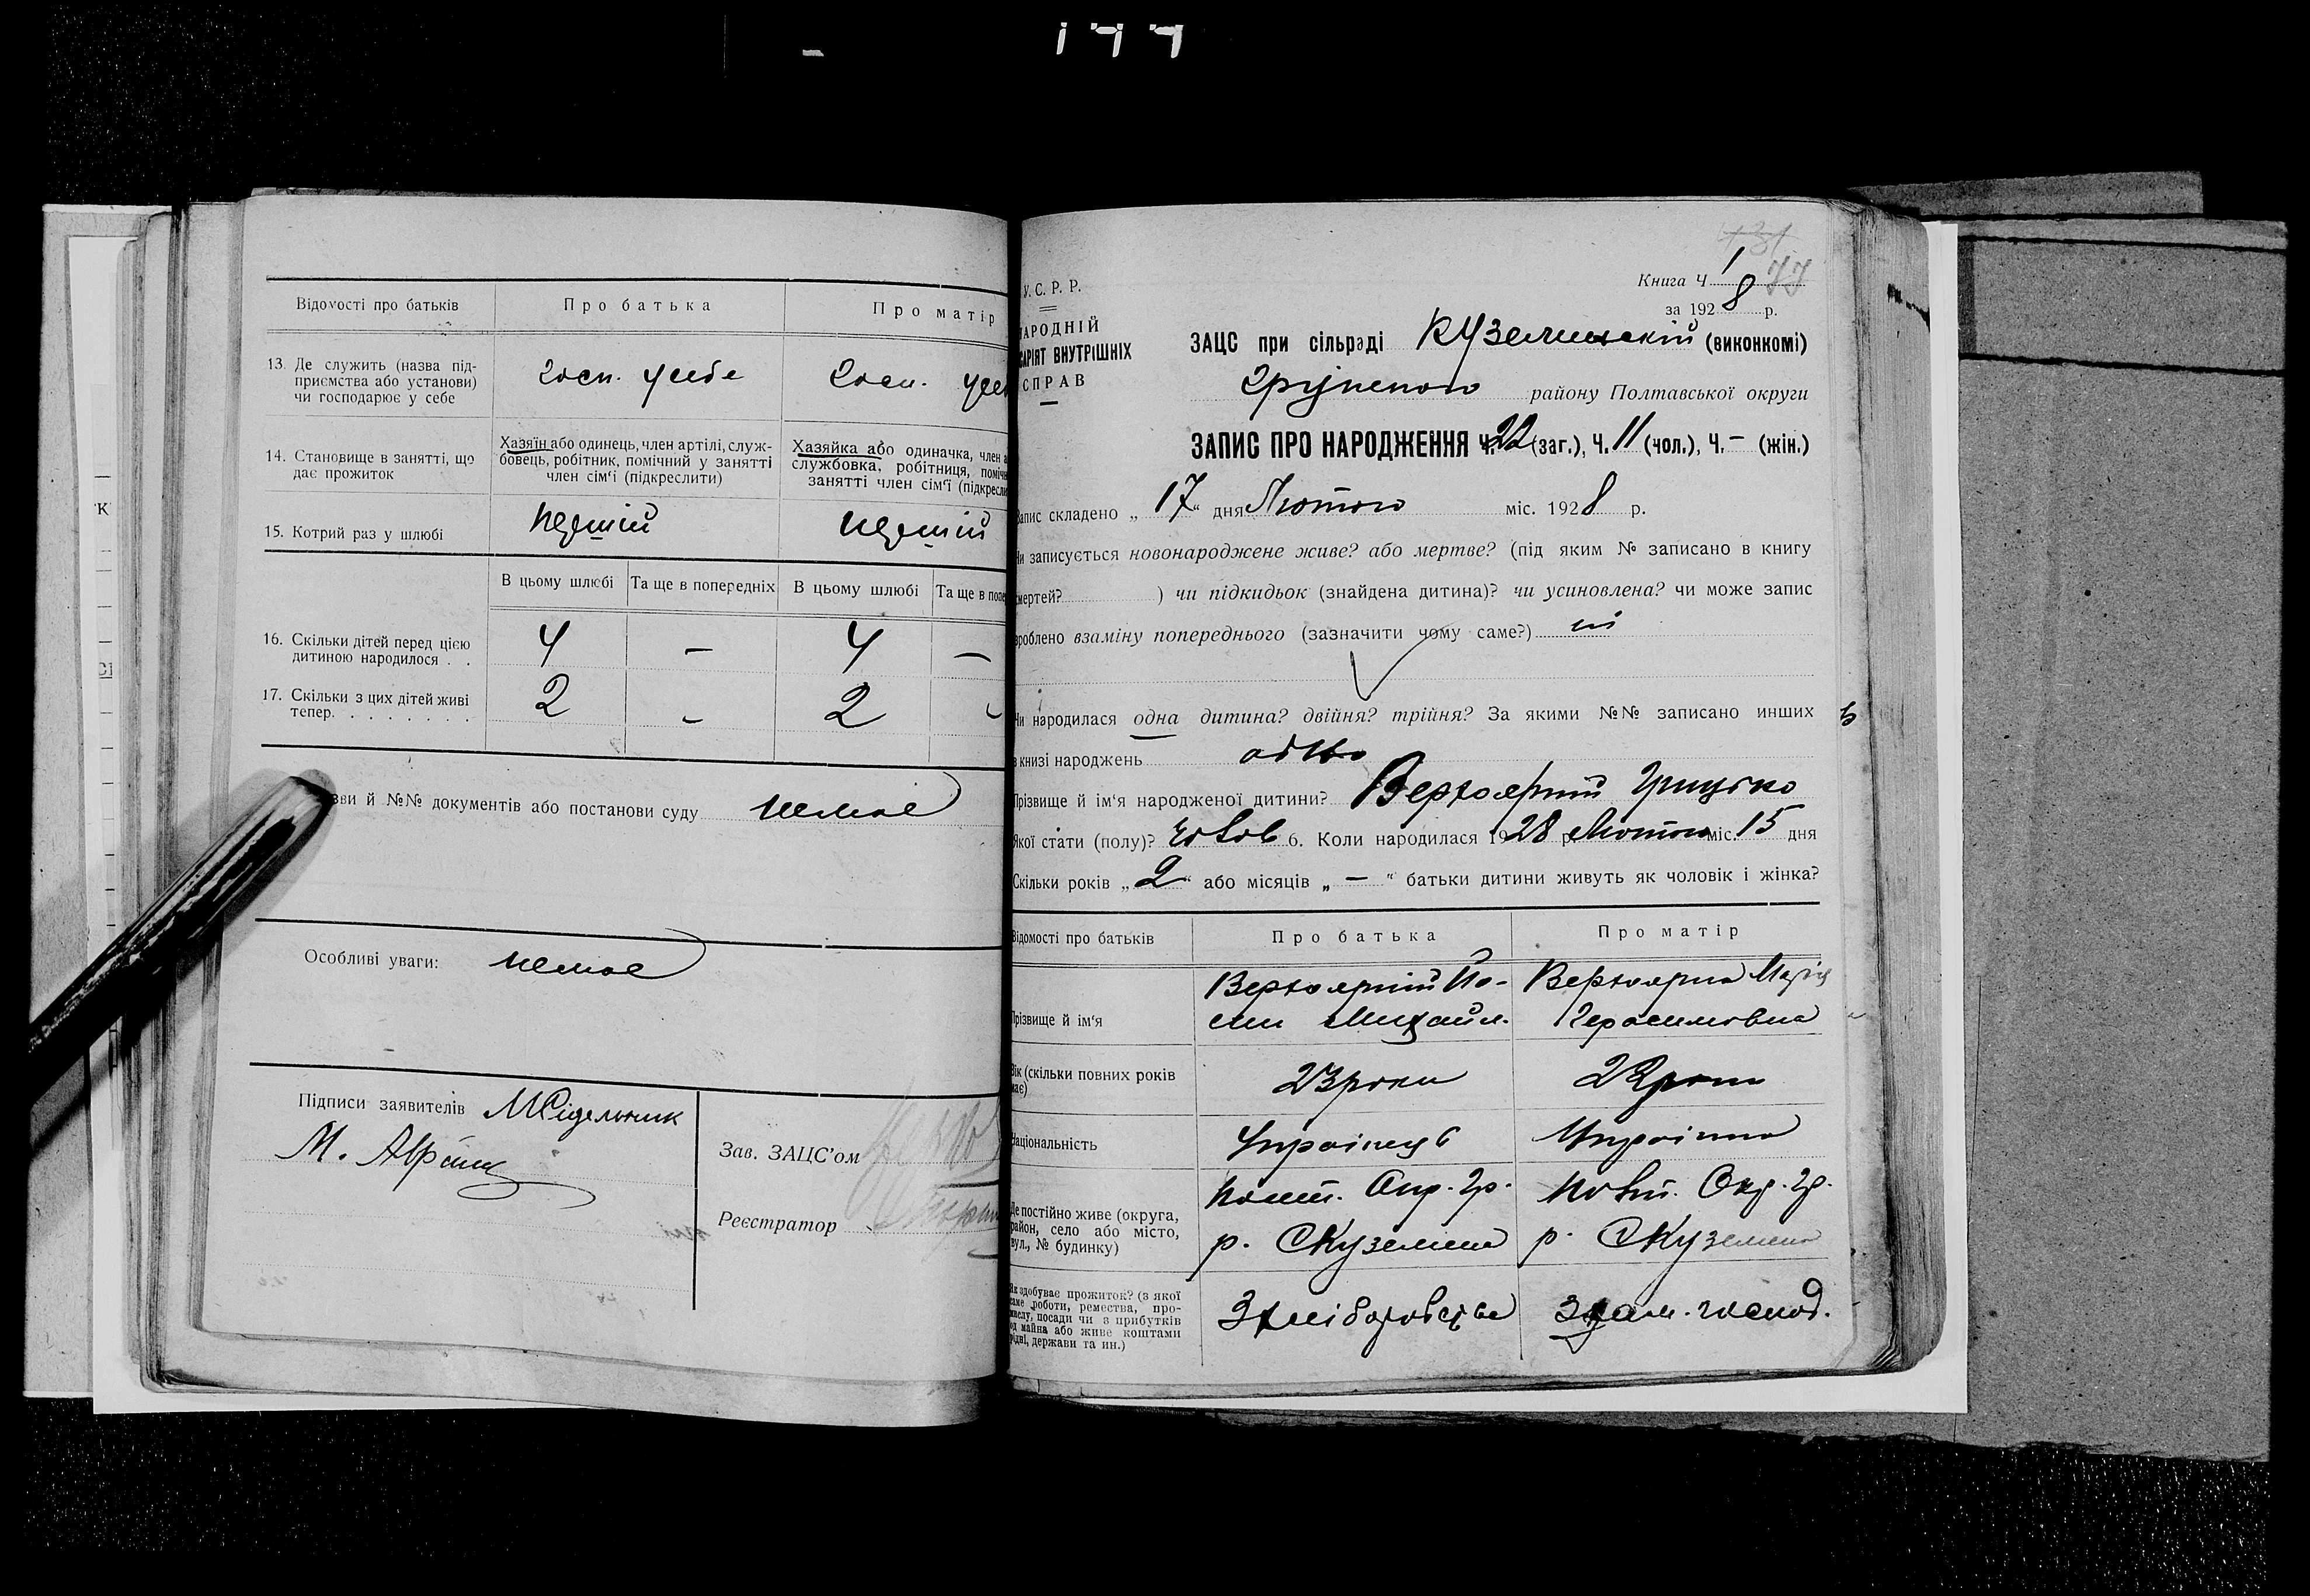 177
Відомості про батьків
Про батька
Про матір
13. Де служить (назва під-
приємства або установи)
чи господарює у себе
Госп. у себе
Госп.
14. Становище в занятті, що
дає прожиток
Хазяїн або одинець, член артілі, служ-
бовець, робітник, помічний у занятті
член сім'ї (підкреслити)
Хазяйка або одиначка, член
службовка, робітниця,
занятті член сім'ї
15. Котрий раз у шлюбі
перший
перший
В цьому шлюбі
Та ще в попередніх
В цьому шлюбі
Та ще в
16. Скільки дітей перед цією
дитиною народилося . .
4 — 4 —
17. Скільки з цих дітей живі
тепер. . . . . . . .
2 - 2 -
й №№ документів або постанови суду немає
Особливі уваги: немає
Підписи заявителів М Сідельник
М.
Зав. ЗАЦС'ом
Реєстратор
Книга Ч 1 77
за 1928 р.
У. С. Р. Р.
НАРОДНІЙ
ВНУТРІШНІХ
СПРАВ
ЗАЦС при сільраді Куземинскій (виконкомі)
Грунского району Полтавської округи
ЗАПИС ПРО НАРОДЖЕННЯ Ч. 22 (заг.), Ч. 11 (чол.), Ч. — (жін.)
Запис складено „ 17 “ дня Лютого міс. 1928 р.
Чи записується новонароджене живе? або мертве? (під яким № записано в книгу
смертей? ) чи підкидьок (знайдена дитина)? чи усиновлена? чи може запис
зроблено взаміну попереднього (зазначити чому саме?) ні
Чи народилася одна дитина? двійня? трійня? За якими №№ записано инших
в книзі народжень одно
Прізвище й ім'я народженої дитини? Верхоярний Грицько
Якої стати (полу)? 6. Коли народилася 1928 р. Лютого міс. 15 дня
Скільки років „ 2 “ або місяців „ — “ батьки дитини живуть як чоловік і жінка?
Відомості про батьків
Про батька
Про матір
Прізвище й ім'я
Верхоярний Йо-
сип Михайл.
Верхоярна Марія
Герасимовна
Вік (скільки повних років
має)
23 роки
22 роки
Національність
Українець
Українка
Де постійно живе (округа,
район, село або місто,
вул., № будинку)
Полт. Окр. Гр.
р. С Куземина
Полт. Окр. Гр.
р. С Куземина
Як здобуває прожиток? (з якої
саме роботи, ремества, про-
мислу, посади чи з прибутків
од майна або живе коштами
рідні, держави та ин.)
З хліборобства
З дом. господ.